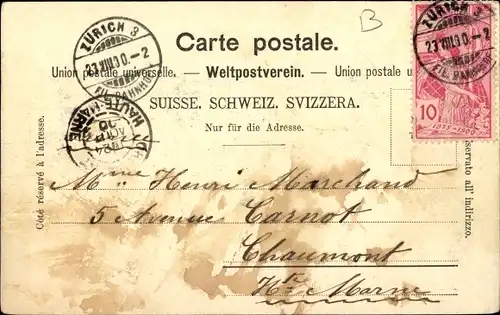 B
ZÜRICH 3
23.VIII.00.-2
FIL. BAHNHOF
Carte postale.
Union postale universelle. — Weltpostverein. — Union postale u
SUISSE. SCHWEIZ. SVIZZERA.
Nur für die Adresse.
Côté réservé à l'adresse.
HAUTE-MARNE
ZÜRICH 3
23.VIII.00.-2
FIL. BAHNHOF
10
1875-1900
servato all' indirizzo.
Mme Henri Marchand
5 Avenue Carnot
Chaumont
Hte Marne